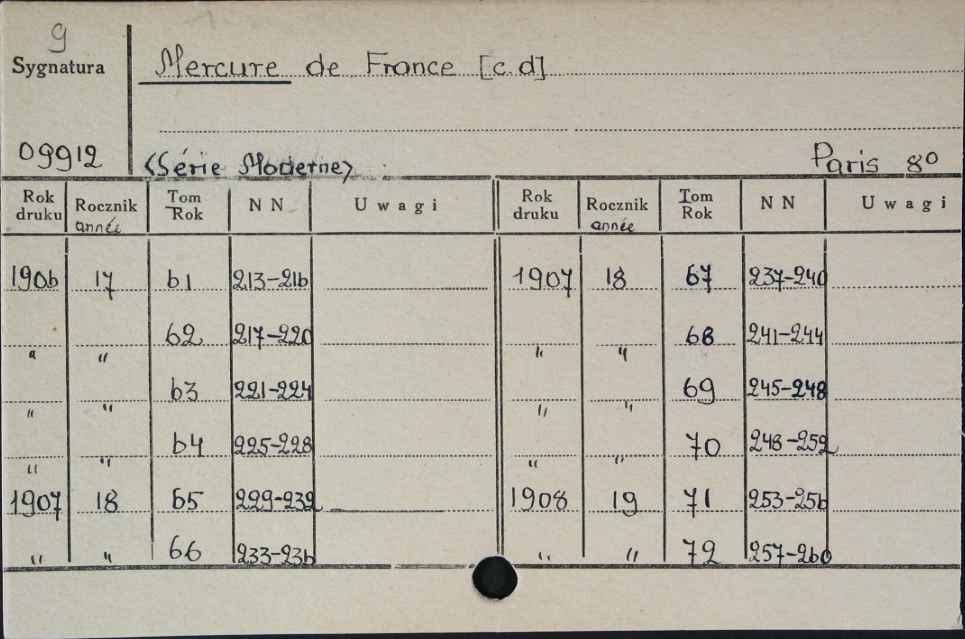 9
Sygnatura
Mercure de France [c.d]
09912
<Série Moderne>
Paris 8°
Rok druku Rocznik année Tom Rok NN Uwagi Rok druku Rocznik année Tom Rok NN Uwagi
1906 17 61 213-216 1907 18 67 237-240
" " 62 217-220 " " 68 241-244
" " 63 221-224 " " 69 245-248
" " 64 225-228 " " 70 248-252
1907 18 65 229-232 1908 19 71 253-256
" " 66 233-236 " " 72 257-260